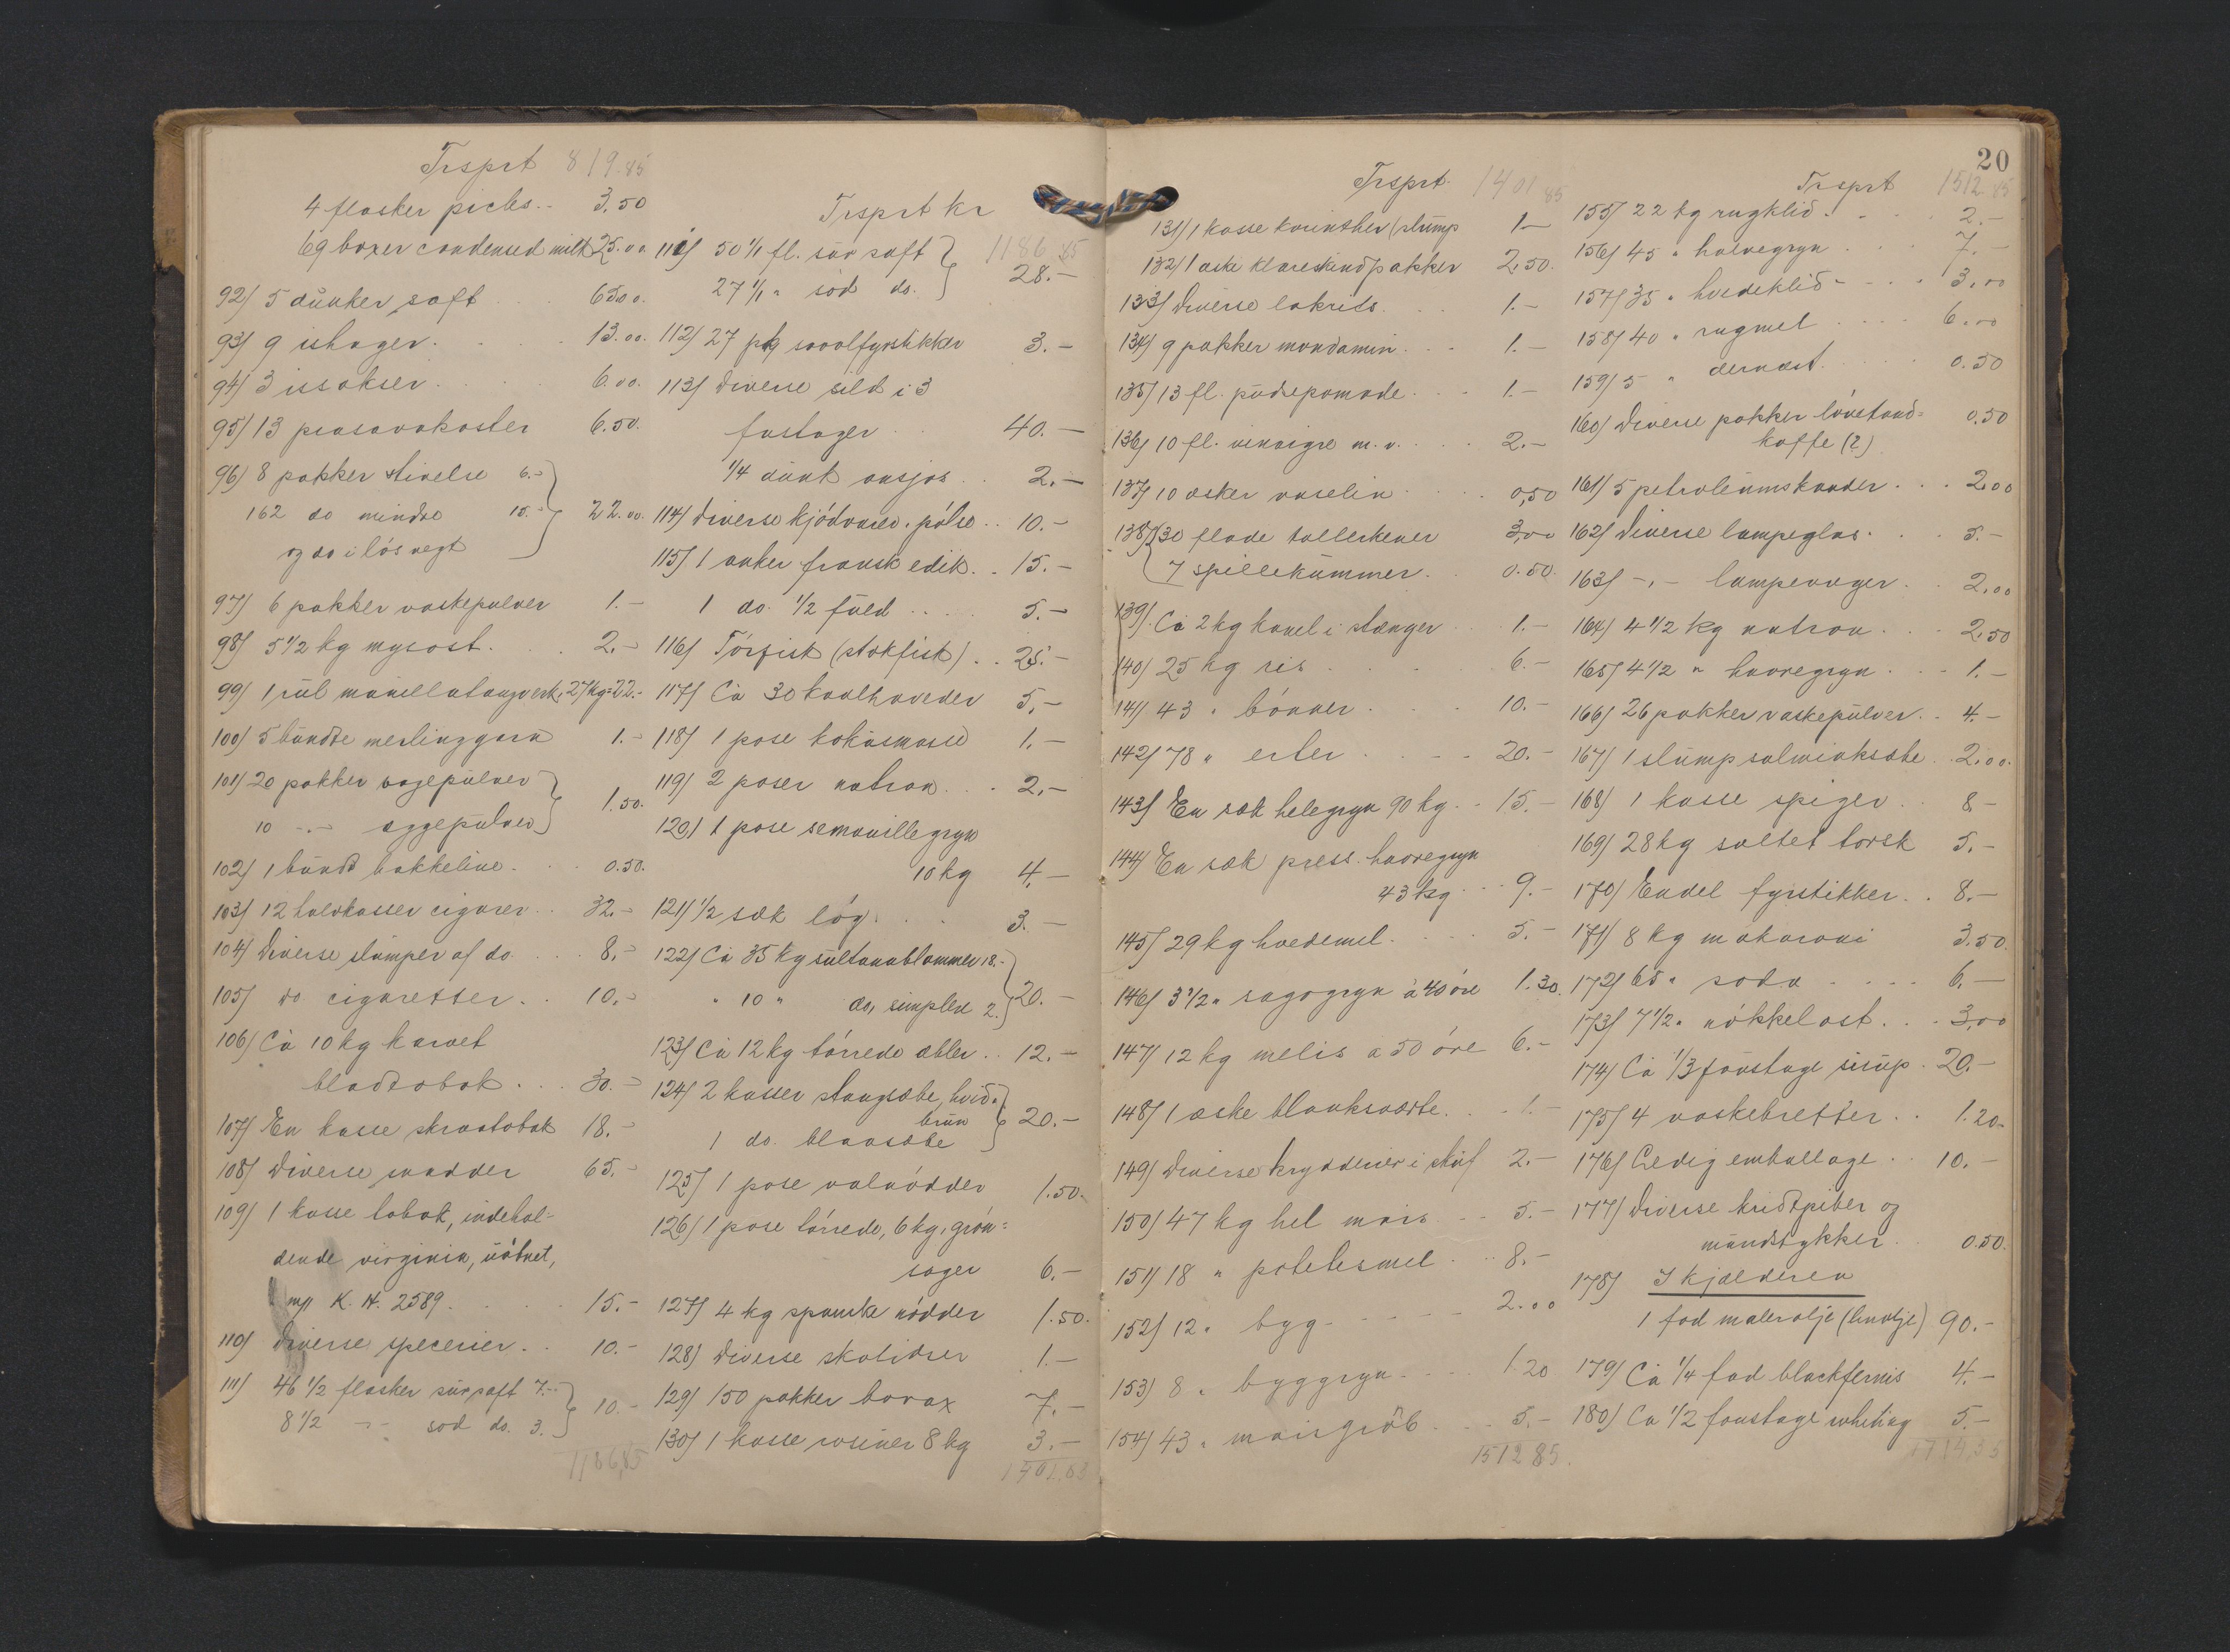 Trsprt 819.85
4 flasker picles.. 3,50
69 boxer condensed milk 25.00
92/ 5 dunker saft 65.00
93/ 9 ishager. 13.00.
94/ 3 issakser. 6.00.
95/ 13 piasavakoster 6.50.
96/ 8 pakker stivelse 6.-
162 do mindre 15.- 22.00.
og do i løs vegt
97/ 6 pakker vaskepulver 1.-
98/ 5 1/2 kg mysost. 2.-
99/ 1 rul manillatougverk, 27kg= 22.-
100/ 5 bundte merlinggarn 1.-
101/ 20 pakker bagepulver
1.50.
10 -.- eggepulver
102/ 1 bundt bakkeline. 0.50.
103/ 12 halvkasser cigarer.. 32.-
104/ Diverse slumper af do. 8.-
105/ do cigaretter. 10.-
106/ Ca 10 kg karvet
bladtobak... 30.-
107/ En kasse skraatobak 18.-
108/ Diverse snadder 65.-
109/ 1 kasse tobak, indehol-
dende virginia, uåbnet,
mrk K. H. 2589. 15.-
110/ Diverse specerier.. 10.-
111/ 46 1/2 flasker sur saft 7.-
10.-
8 1/2 -- sød do. 3.
1186,85
Trsprt kr
1186.85
111/ 50 1/1 fl. sur saft
28.-
27 1/1 " sød do.
112/ 27 pkg svovlfyrstikker 3.-
113/ Diverse sild i 3
fustager 40.-
1/4 dunk ansjos.. 2.-
114/ Diverse kjødvarer, pølse.. 10.-
115/ 1 anker fransk edik.. 15.-
1 do. 1/2 fuld.... 5.-
116/ Tørfisk (stokfisk).. 25.-
117/ Ca 30 kaalhoveder 5,-
118/ 1 pose kokusmasse 1,-
119/ 2 poser natron... 2,-
120/ 1 pose semouillegryn
10 kg 4,-
121/ 1/2 sæk løg. 3.-
122/ Ca 35 kg sultanablommer 18.-
20.-
" 10 " do, simplere 2.
123/ Ca 12 kg tørrede æbler.. 12.-
124/ 2 kasser stangsæbe, hvid &
brun
20.-
1 do. blaasæbe
125/ 1 pose valnødder 1.50.
126/ 1 pose tørrede, 6 kg, grøn=
sager 6.-
127/ 4 kg spanske nødder 1.50.
128/ Diverse skolidser 1.-
129/ 150 pakker borax 7.-
130/ 1 kasse rosiner 8 kg 3.-
1401.85
Trsprt. 1401 85
131/ 1 kasse korinther (slump 1.-
132/ 1 æske klareskindpakker 2,50.
133/ Diverse lakrids.. 1.-
134/ 9 pakker mondamin... 1.-
135/ 13 fl. pudrepomade... 1.-
136/ 10 fl. vinaigre m. v.... 2.-
137/ 10 æsker vaselin.. 0,50
138/ 30 flade tallerkener 3,00
7 spillekummer. 0.50.
139/ Ca 2 kg kanel i stænger.. 1.-
140/ 25 kg ris.... 6.-
141/ 43 " bønner... 10.-
142/ 78 " erter... 20.-
143/ En sæk helegryn 90 kg.. 15.-
144/ En sæk press. havregryn
43 kg... 9.-
145/ 29 kg hvedemel.... 5.-
146/ 3 1/2 " sagogryn à 40 øre 1.30.
147/ 12 kg melis a 50 øre 6.-
148/ 1 æske blanksverte... 1.-
149/ Diverse krydderier i skuf 2.-
150/ 47 kg hel mais.. 5.-
151/ 18 " potetesmel.. 8.-
152/ 12 " byg..... 2.00
153/ 8 " byggryn.... 1.20
154/ 43 " maisgrøb... 5.-
1512 85.
20
Trsprt 1512.85
155/ 22 kg rugklid... 2.-
156/ 45 " halvegryn... 7.-
157/ 35 " hvedeklid... 3,00
158/ 40 " rugmel.... 6.00
159/ 5 " dernæst.... 0.50
160/ Diverse pakker løvetand= 0,50
kaffe (?)
161/ 5 petroleumskander... 2,00
162/ Diverse lampeglas... 5.-
163/ -,- lampevæger.. 2.00
164/ 4 1/2 kg natron... 2.50
165/ 4 1/2 " havregryn... 1.-
166/ 26 pakker vaskepulver.. 4.-
167/ 1 slump salmiaksæbe.. 2.00.
168/ 1 kasse spiger.. 8.-
169/ 28 kg saltet torsk 5.-
170/ Endel fyrstikker.. 8.-
171/ 8 kg makaroni 3.50.
172/ 65 " soda.... 6.-
173/ 7 1/2 " nøkkelost... 3,00
174/ Ca 1/3 foustage sirup. 20.-
175/ 4 vaskebretter.. 1.20-
176/ Ledig emballage.. 10.-
177/ Diverse kridtpiber og
mundstykker.. 0.50.
178/ I kjælderen
1 fad malerolje (linolje) 90.-
179/ Ca 1/4 fad blackfernis 4.-
180/ Ca 1/2 foustage whiting 5.-